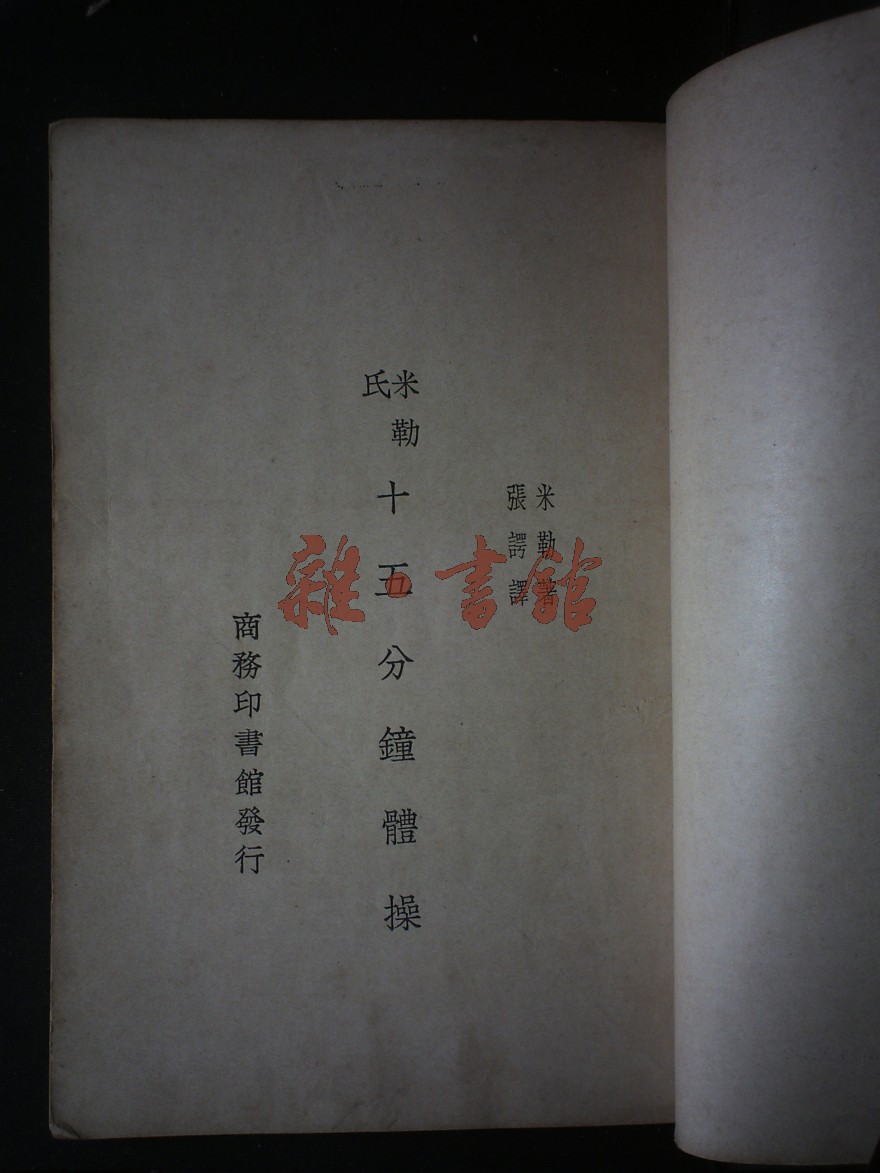 米勒著
張諤譯
米勒氏十五分鐘體操
商務印書館發行
雜·書館